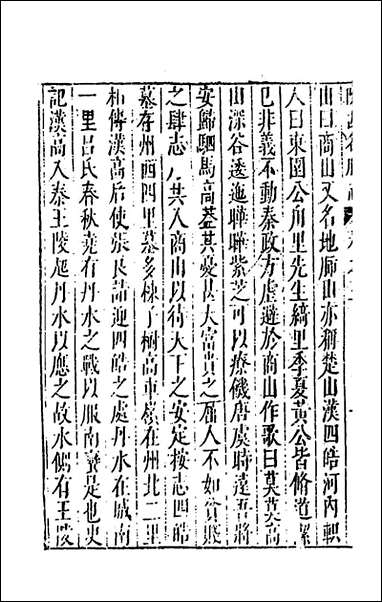 山曰商山又名地肺山亦稱楚山漢四皓河內軹
人曰東園公甪里先生綺里季夏黃公皆脩道潔
巳非義不動秦政方虐避於商山作歌曰莫莫高
山深谷逶迤曄曄紫芝可以療饑唐虞時遠吾將
安歸駟馬高蓋其憂甚大富貴之 人不如貧賤
之肆志 共入商山以待天下之安定按志四皓
墓在州西四里墓多楝了樹高車嶺在州北二里
相傳漢高后使張良詣迎四皓之處丹水在城南
一里呂氏春秋堯有丹水之戰以服南蠻是也史
記漢高入秦王陵起丹水以應之故水側有王陵